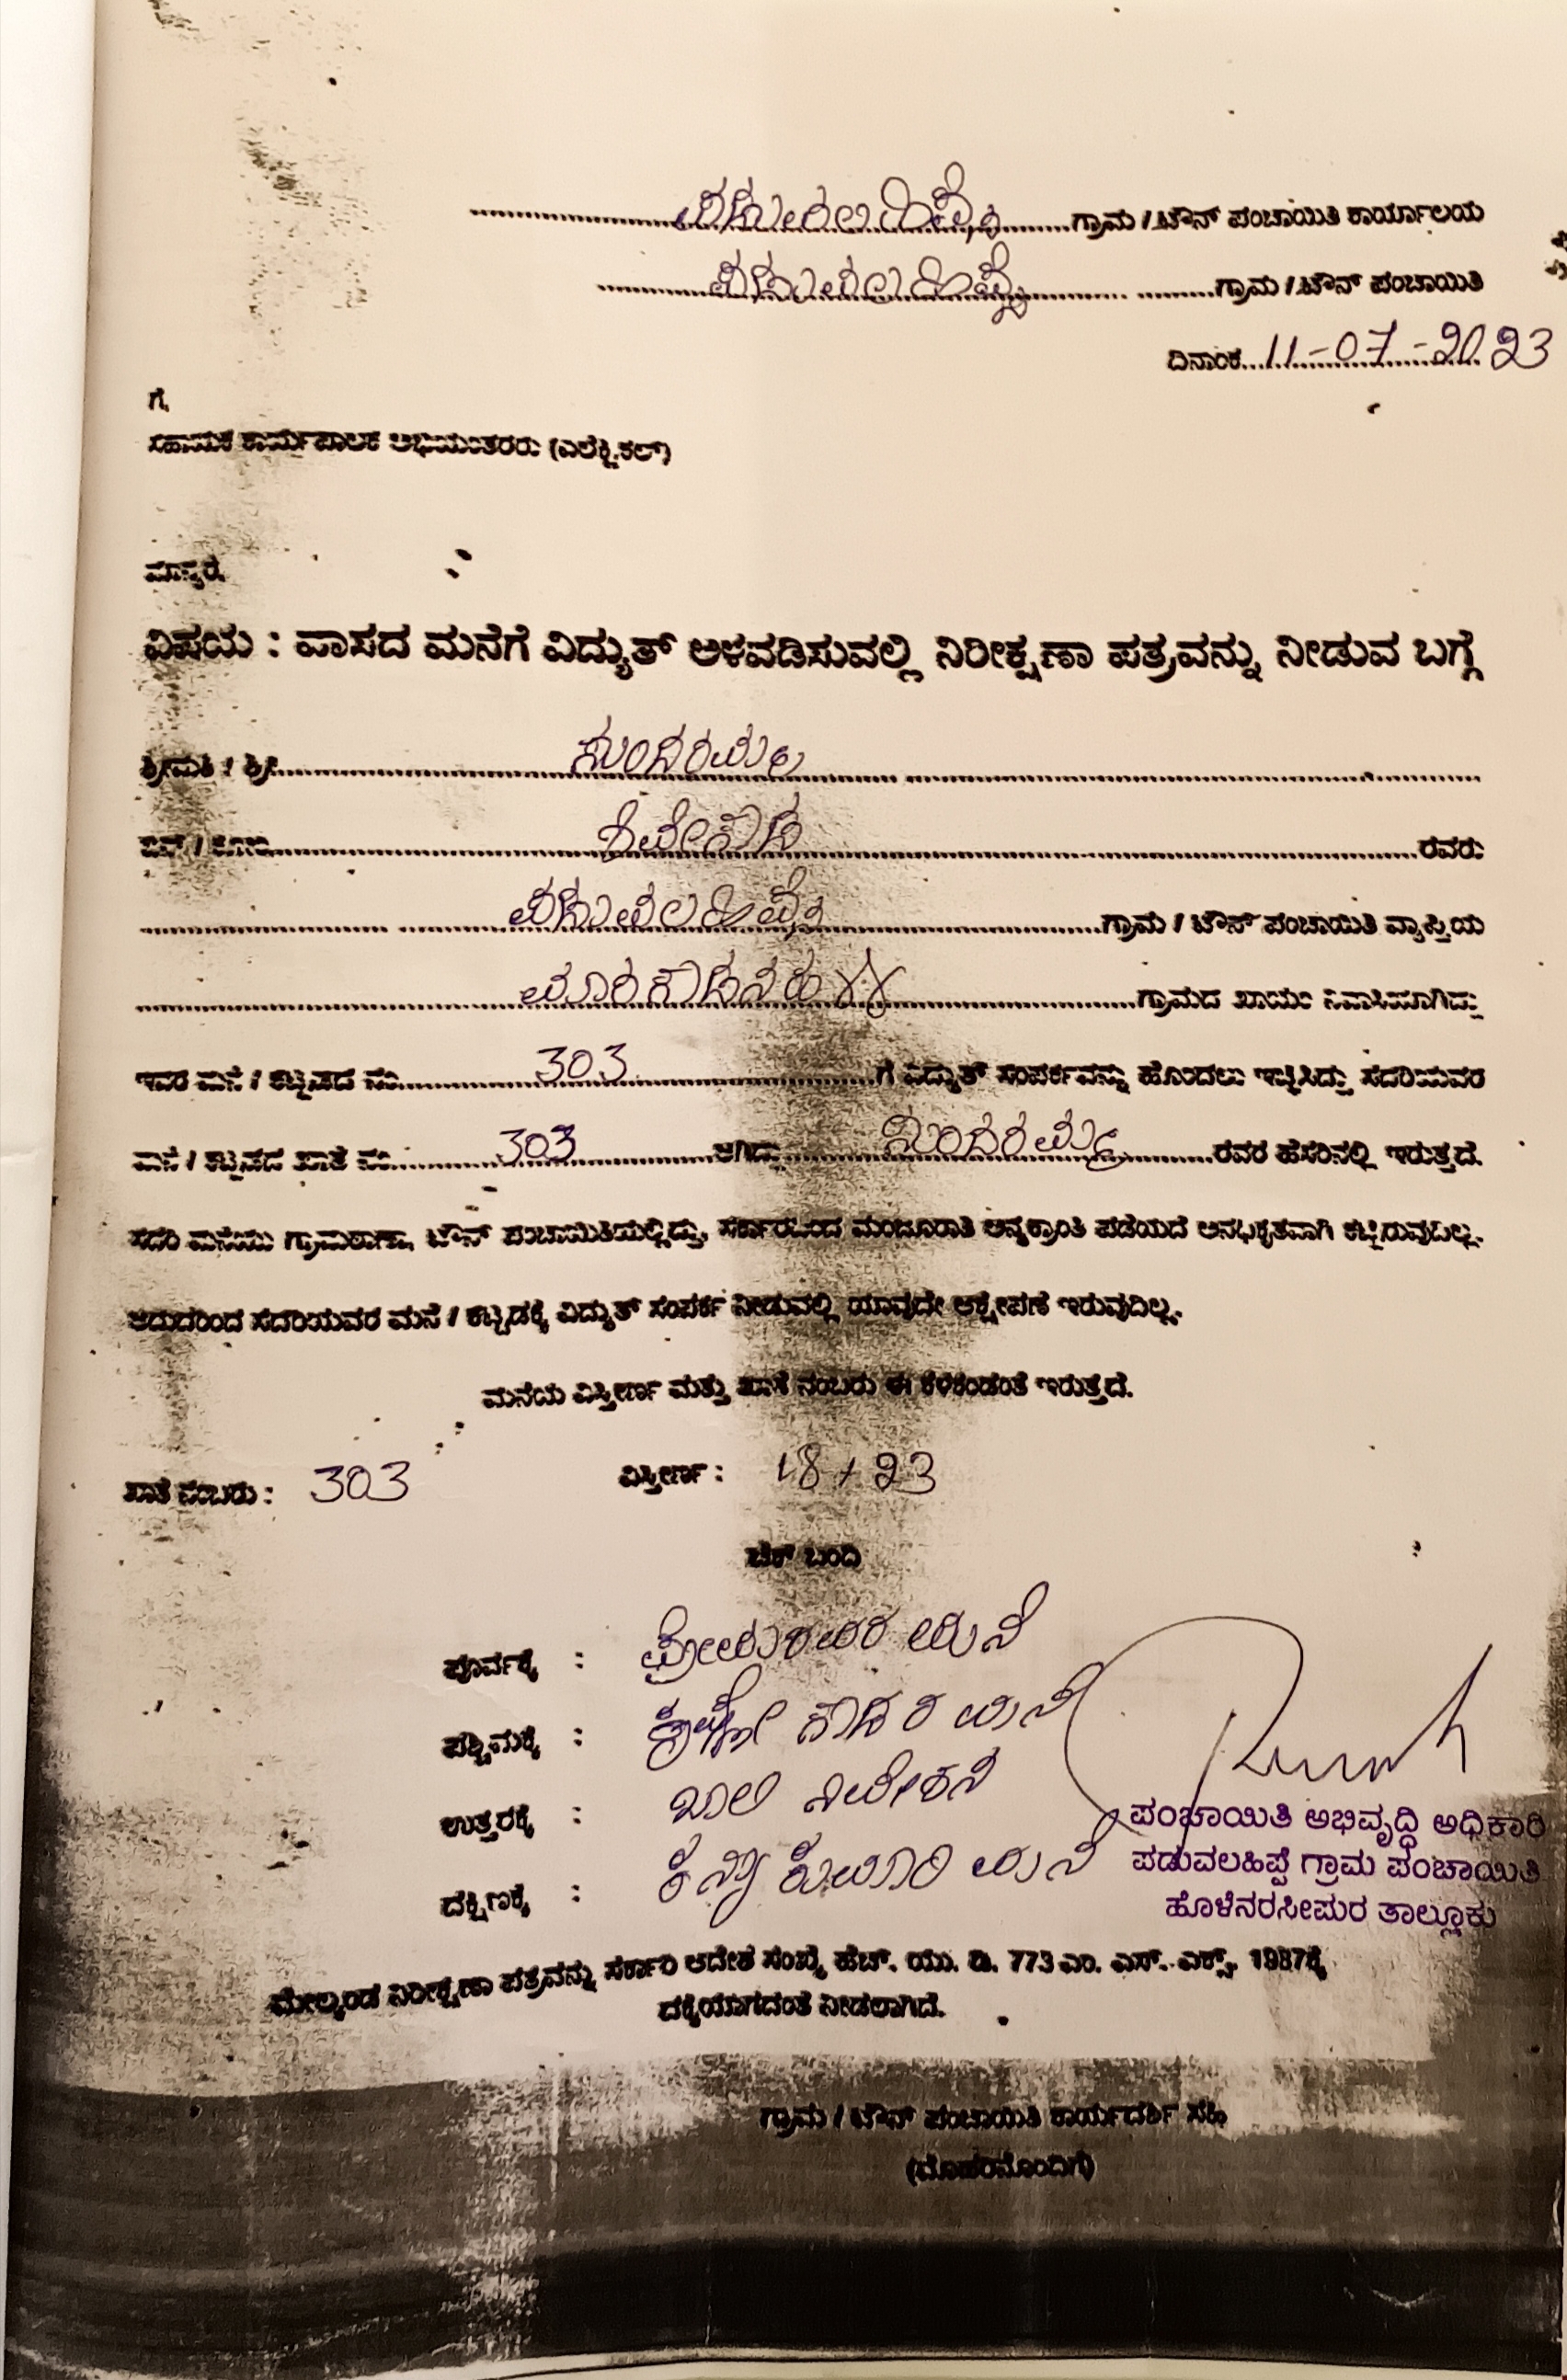 ಪಡುವಲಹಿಪ್ಪೆ ಗ್ರಾಮ / ಟೌನ್ ಪಂಚಾಯಿತಿ ಕಾರ್ಯಾಲಯ
ಪಡುವಲಹಿಪ್ಪೆ ಗ್ರಾಮ / ಟೌನ್ ಪಂಚಾಯಿತಿ
ದಿನಾಂಕ 11-07-2023
ಗೆ,
ಸಹಾಯಕ ಕಾರ್ಯಪಾಲಕ ಅಭಿಯಂತರರು (ಎಲೆಕ್ಟ್ರಿಕಲ್)
ಮಾನ್ಯರೆ,
ವಿಷಯ : ವಾಸದ ಮನೆಗೆ ವಿದ್ಯುತ್ ಅಳವಡಿಸುವಲ್ಲಿ ನಿರೀಕ್ಷಣಾ ಪತ್ರವನ್ನು ನೀಡುವ ಬಗ್ಗೆ
ಶ್ರೀಮತಿ / ಶ್ರೀ ಸುಂದರಮ್ಮ
ರವರು
ಪಡುವಲಹಿಪ್ಪೆ ಗ್ರಾಮ / ಟೌನ್ ಪಂಚಾಯಿತಿ ವ್ಯಾಪ್ತಿಯ
ಮಾರಗೌಡನಹಳ್ಳಿ ಗ್ರಾಮದ ಖಾಯಂ ನಿವಾಸಿಯಾಗಿದ್ದು
ಇವರ ಮನೆ / ಕಟ್ಟಡದ ನಂ 303 ಗೆ ವಿದ್ಯುತ್ ಸಂಪರ್ಕವನ್ನು ಹೊಂದಲು ಇಚ್ಛಿಸಿದ್ದು ಸದರಿಯವರ
ಮನೆ / ಕಟ್ಟಡದ ಖಾತೆ ನಂ 303 ಆಗಿದ್ದು ಸುಂದರಮ್ಮ ರವರ ಹೆಸರಿನಲ್ಲಿ ಇರುತ್ತದೆ.
ಸದರಿ ಮನೆಯು ಗ್ರಾಮಠಾಣಾ, ಟೌನ್ ಪಂಚಾಯಿತಿಯಲ್ಲಿದ್ದು, ಸರ್ಕಾರದಿಂದ ಮಂಜೂರಾತಿ ಅನ್ಯಕ್ರಾಂತಿ ಪಡೆಯದೆ ಅನಧಿಕೃತವಾಗಿ ಕಟ್ಟಿರುವುದಿಲ್ಲ.
ಆದುದರಿಂದ ಸದರಿಯವರ ಮನೆ / ಕಟ್ಟಡಕ್ಕೆ ವಿದ್ಯುತ್ ಸಂಪರ್ಕ ನೀಡುವಲ್ಲಿ ಯಾವುದೇ ಆಕ್ಷೇಪಣೆ ಇರುವುದಿಲ್ಲ.
ಮನೆಯ ವಿಸ್ತೀರ್ಣ ಮತ್ತು ಖಾತೆ ನಂಬರು ಈ ಕೆಳಕಂಡಂತೆ ಇರುತ್ತದೆ.
ಖಾತೆ ನಂಬರು : 303 ವಿಸ್ತೀರ್ಣ : 18 + 23
ಚೆಕ್ ಬಂದಿ
ಪೂರ್ವಕ್ಕೆ : ಮನೆ
ಪಶ್ಚಿಮಕ್ಕೆ : ಗೌಡರ ಮನೆ
ಉತ್ತರಕ್ಕೆ : ಖಾಲಿ ನಿವೇಶನ
ದಕ್ಷಿಣಕ್ಕೆ : ಮನೆ
ಪಂಚಾಯಿತಿ ಅಭಿವೃದ್ಧಿ ಅಧಿಕಾರಿ
ಪಡುವಲಹಿಪ್ಪೆ ಗ್ರಾಮ ಪಂಚಾಯಿತಿ
ಹೊಳೆನರಸೀಪುರ ತಾಲ್ಲೂಕು
ಮೇಲ್ಕಂಡ ನಿರೀಕ್ಷಣಾ ಪತ್ರವನ್ನು ಸರ್ಕಾರಿ ಆದೇಶ ಸಂಖ್ಯೆ ಹೆಚ್. ಯು. ಡಿ. 773 ಎಂ. ಎಸ್. ಎಕ್ಸ್. 1987ಕ್ಕೆ
ದಕ್ಕೆಯಾಗದಂತೆ ನೀಡಲಾಗಿದೆ.
ಗ್ರಾಮ / ಟೌನ್ ಪಂಚಾಯಿತಿ ಕಾರ್ಯದರ್ಶಿ ಸಹಿ
(ಮೊಹರಿನೊಂದಿಗೆ)